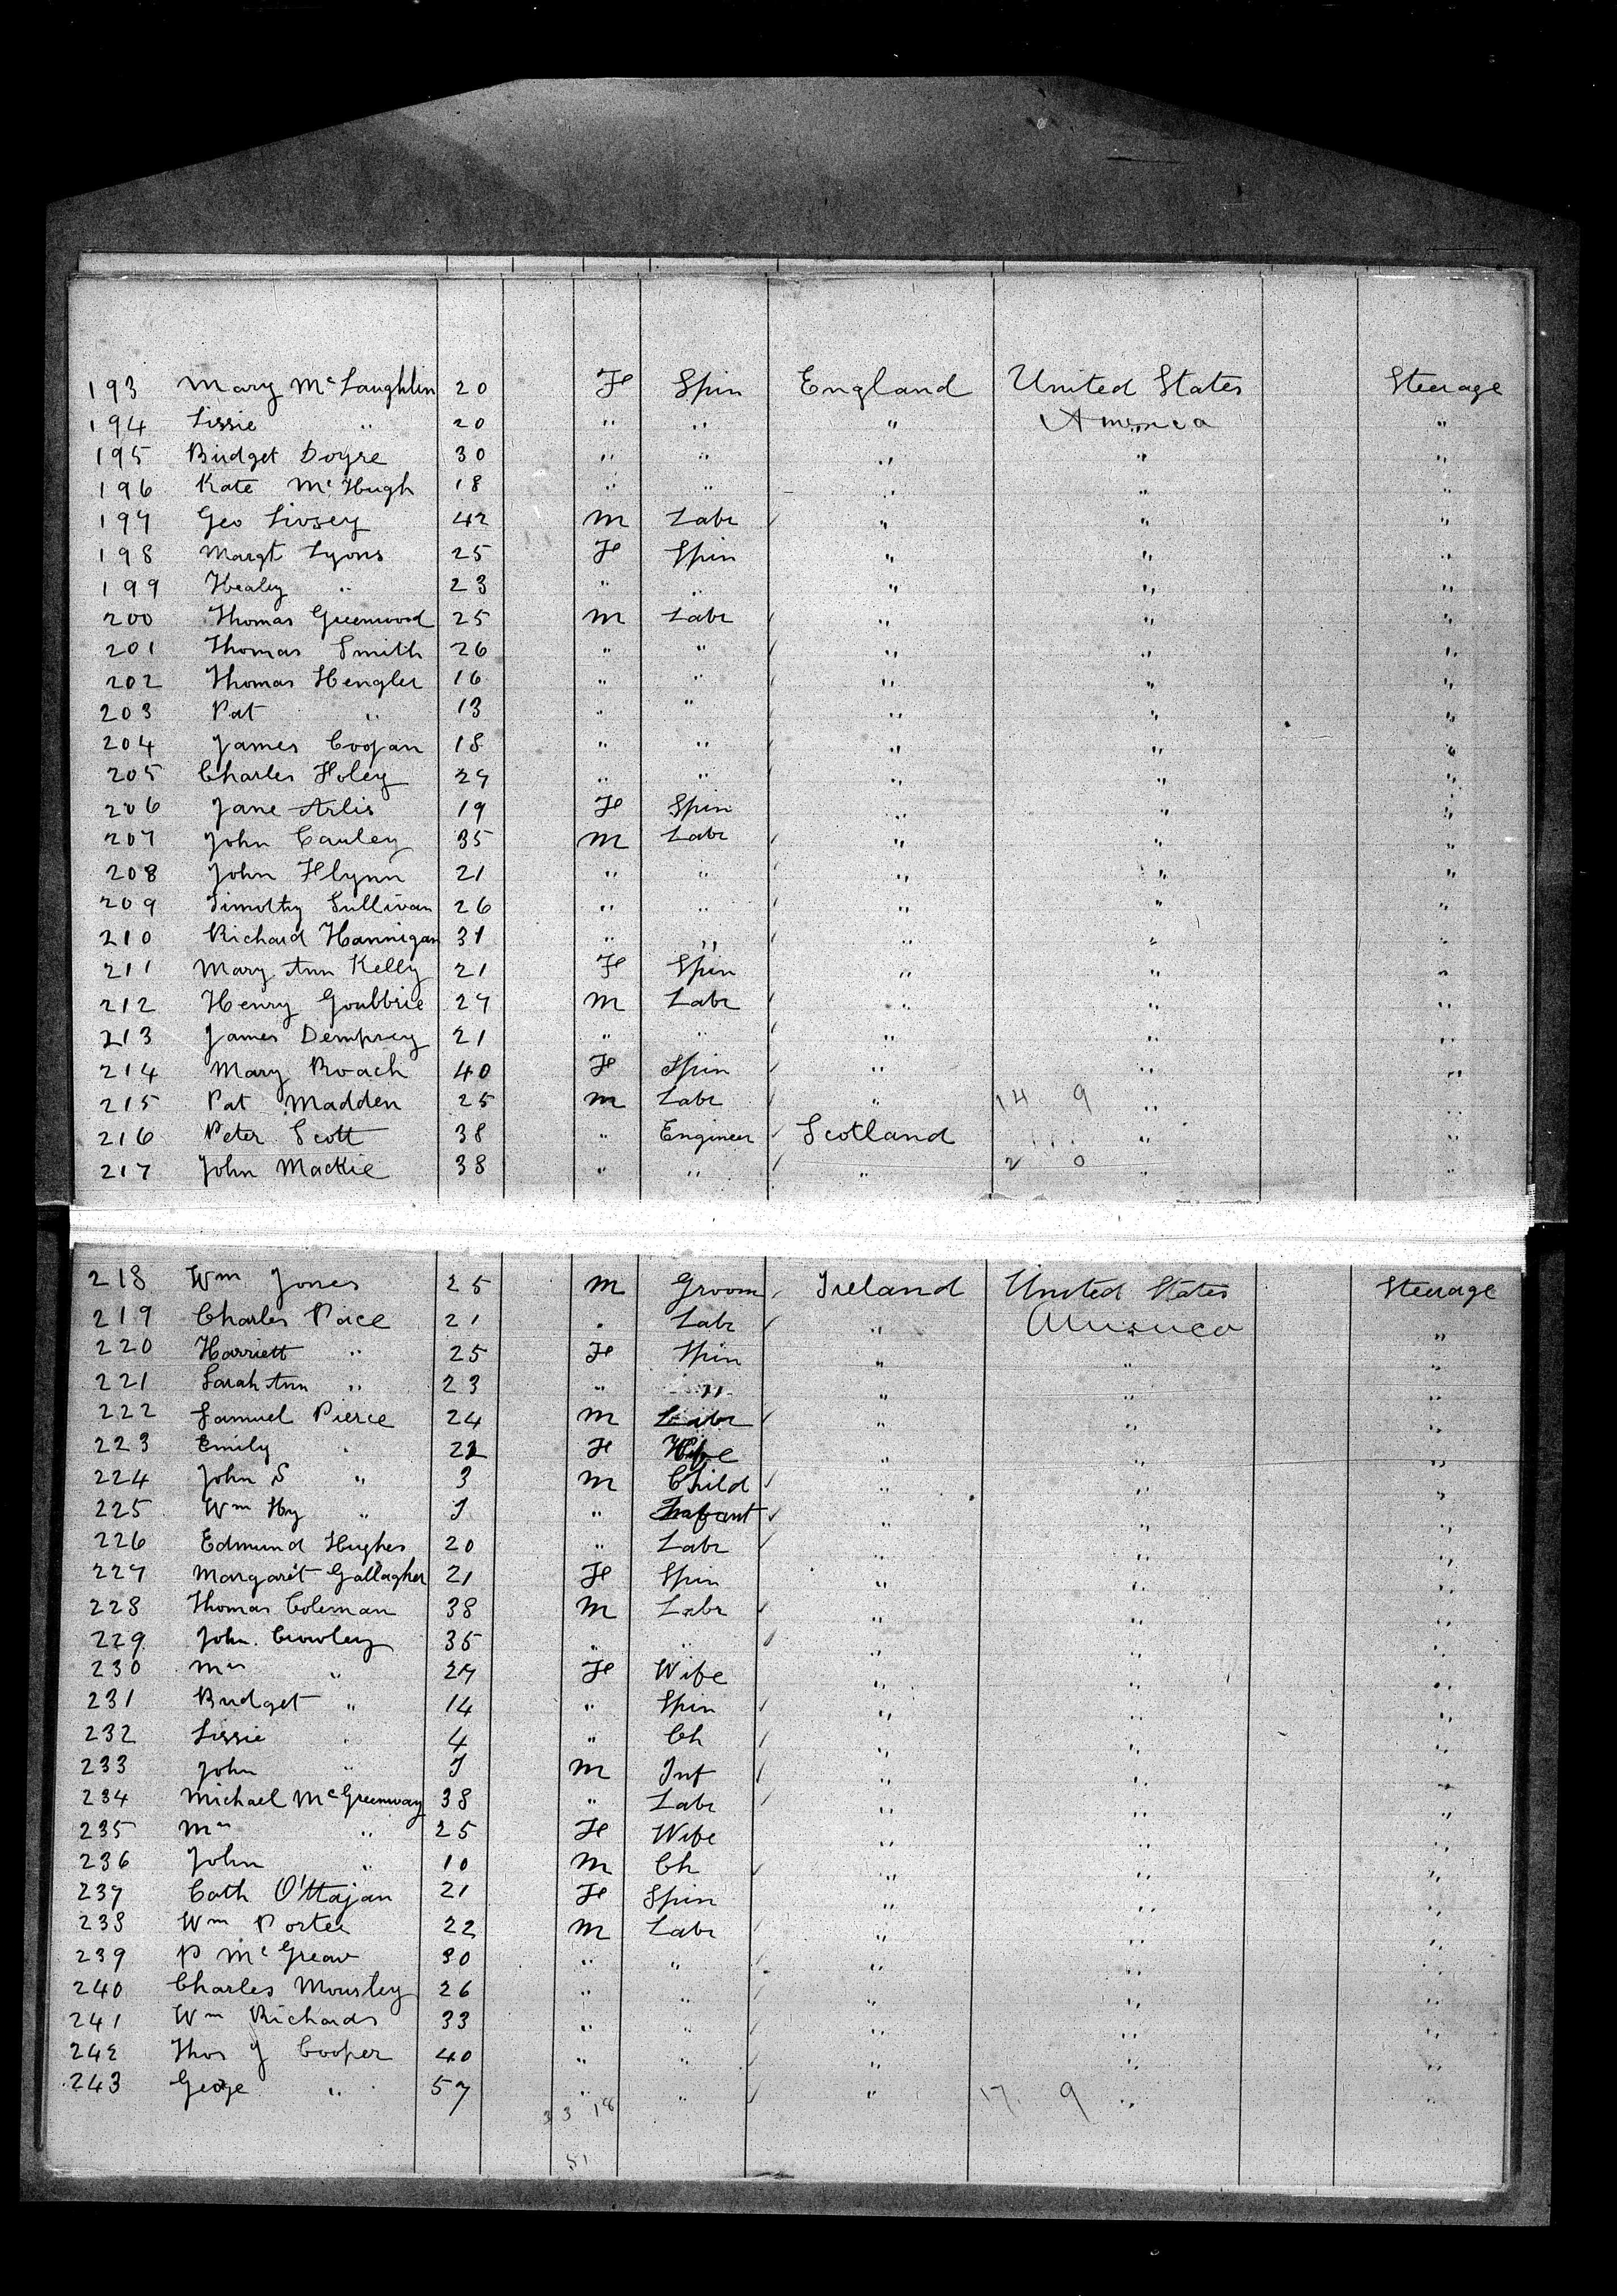 193 Mary McLaughlin 20 F Spin England United States Steerage
194 Lissie " 20 " " " America "
195 Bridget Doyre 30 " " " " "
196 Kate McHugh 18 " " " " "
197 Geo Livsey 42 M Labr " " "
198 Margt Lyons 25 F Spin " " "
199 Healey " 23 " " " " "
200 Thomas Greenwood 25 M Labr " " "
201 Thomas Smith 26 " " " " "
202 Thomas Hengler 16 " " " " "
203 Pat " 13 " " " " "
204 James Coogan 18 " " " " "
205 Charles Foley 27 " " " " "
206 Jane Arlis 19 F Spin " " "
207 John Cauley 35 M Labr " " "
208 John Flynn 21 " " " " "
209 Timothy Sullivan 26 " " " " "
210 Richard Hannigan 31 " " " " "
211 Mary Ann Kelly 21 F Spin " " "
212 Henry Goubbrie 27 M Labr " " "
213 James Dempsey 21 " " " " "
214 Mary Roach 40 F Spin " " "
215 Pat Madden 25 M Labr " 14 9 " "
216 Peter Scott 38 " Engineer Scotland " "
217 John Mackie 38 " " " 2 0 " "
218 Wm Jones 25 M Groom Ireland United States Steerage
219 Charles Price 21 " Labr " America "
220 Harriett " 25 F Spin " " "
221 Sarah Ann " 23 " " " " "
222 Samuel Pierce 24 M Labr " " "
223 Emily " 22 F Wife " " "
224 John S " 3 M Child " " "
225 Wm Hy " I " Infant " " "
226 Edmund Hughes 20 " Labr " " "
227 Margaret Gallagher 21 F Spin " " "
228 Thomas Coleman 38 M Labr " " "
229 John Crowley 35 " " " " "
230 Mrs " 27 F Wife " " "
231 Bridget " 14 " Spin " " "
232 Lissie " 4 " Ch " " "
233 John " I M Inf " " "
234 Michael McGreenway 38 " Labr " " "
235 Mrs " 25 F Wife " " "
236 John " 10 M Ch " " "
237 Cath O'Hajan 21 F Spin " " "
238 Wm Porter 22 M Labr " " "
239 P McGreav 30 " " " " "
240 Charles Mousley 26 " " " " "
241 Wm Richards 33 " " " " "
242 Thos J Cooper 40 " " " " "
243 Geoge " 57 " " " 17 9 " "
33 18
51